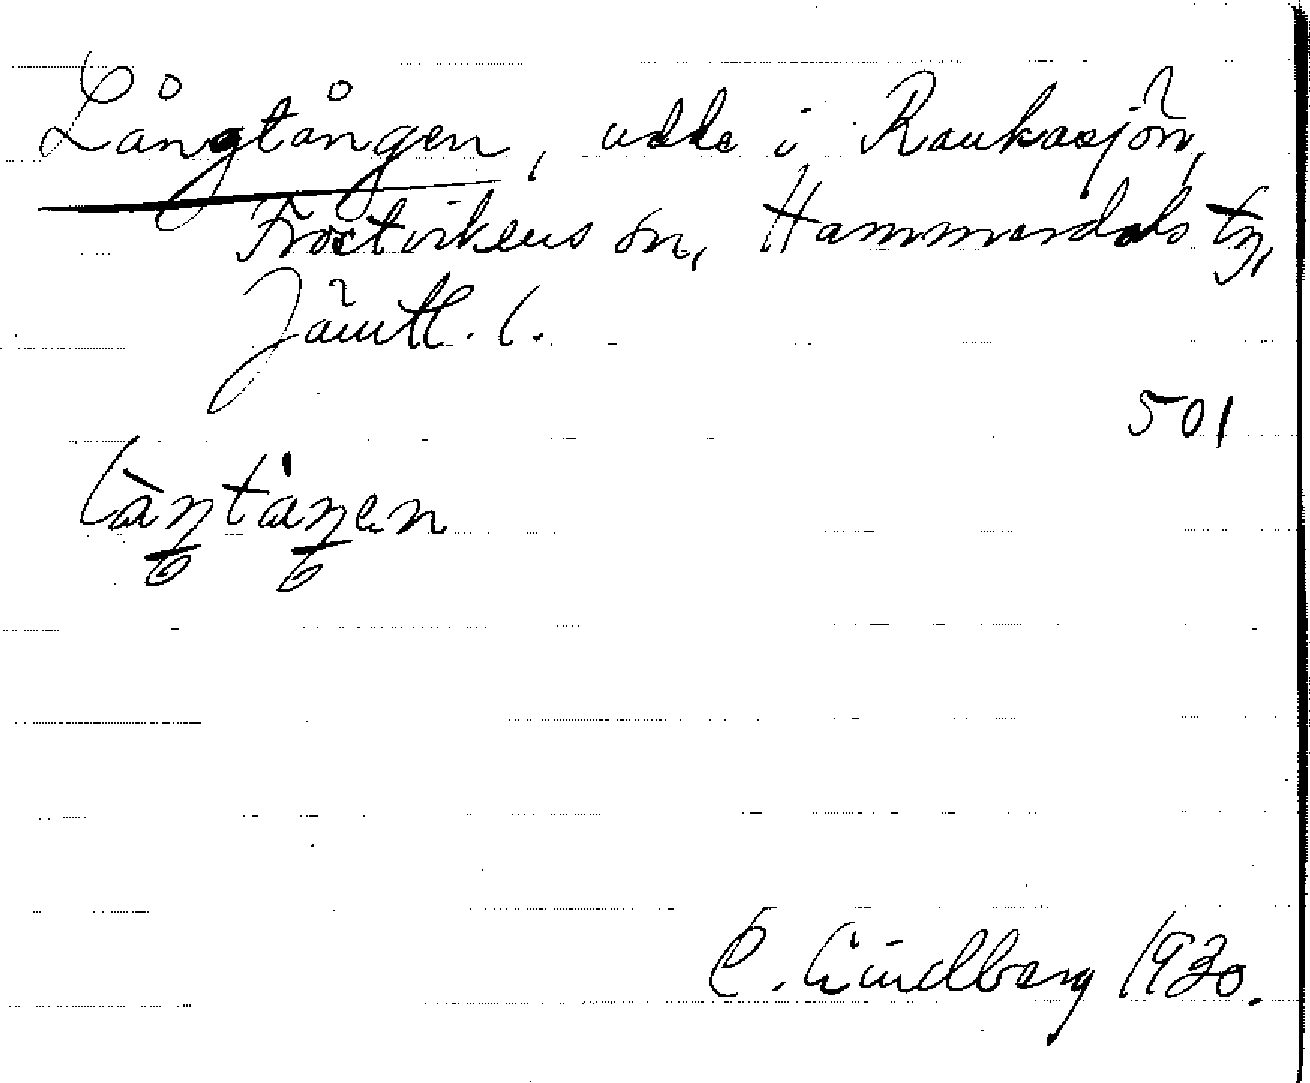 Långtången, udde i Raukasjön,
Frostvikens sn, Hammerdals tg,
Jämtl. l.
501
C. Lindberg 1930.